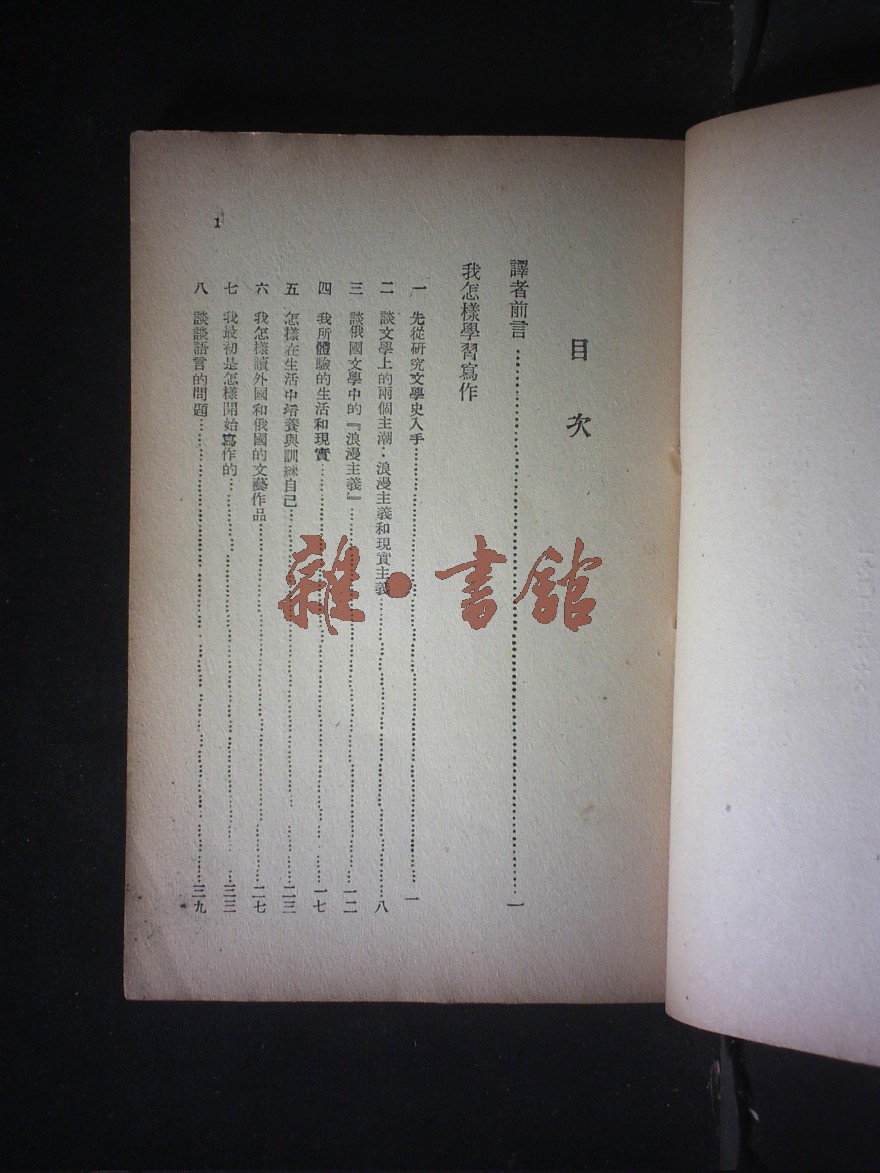 目次
譯者前言……一
我怎樣學習寫作
一 先從研究文學史入手……一
二 談文學上的兩個主潮：浪漫主義和現實主義……八
三 談俄國文學中的『浪漫主義』……一二
四 我所體驗的生活和現實……一七
五 怎樣在生活中培養與訓練自己……二三
六 我怎樣讀外國和俄國的文藝作品……二七
七 我最初是怎樣開始寫作的……三三
八 談談語言的問題……三九
1
雜·書館